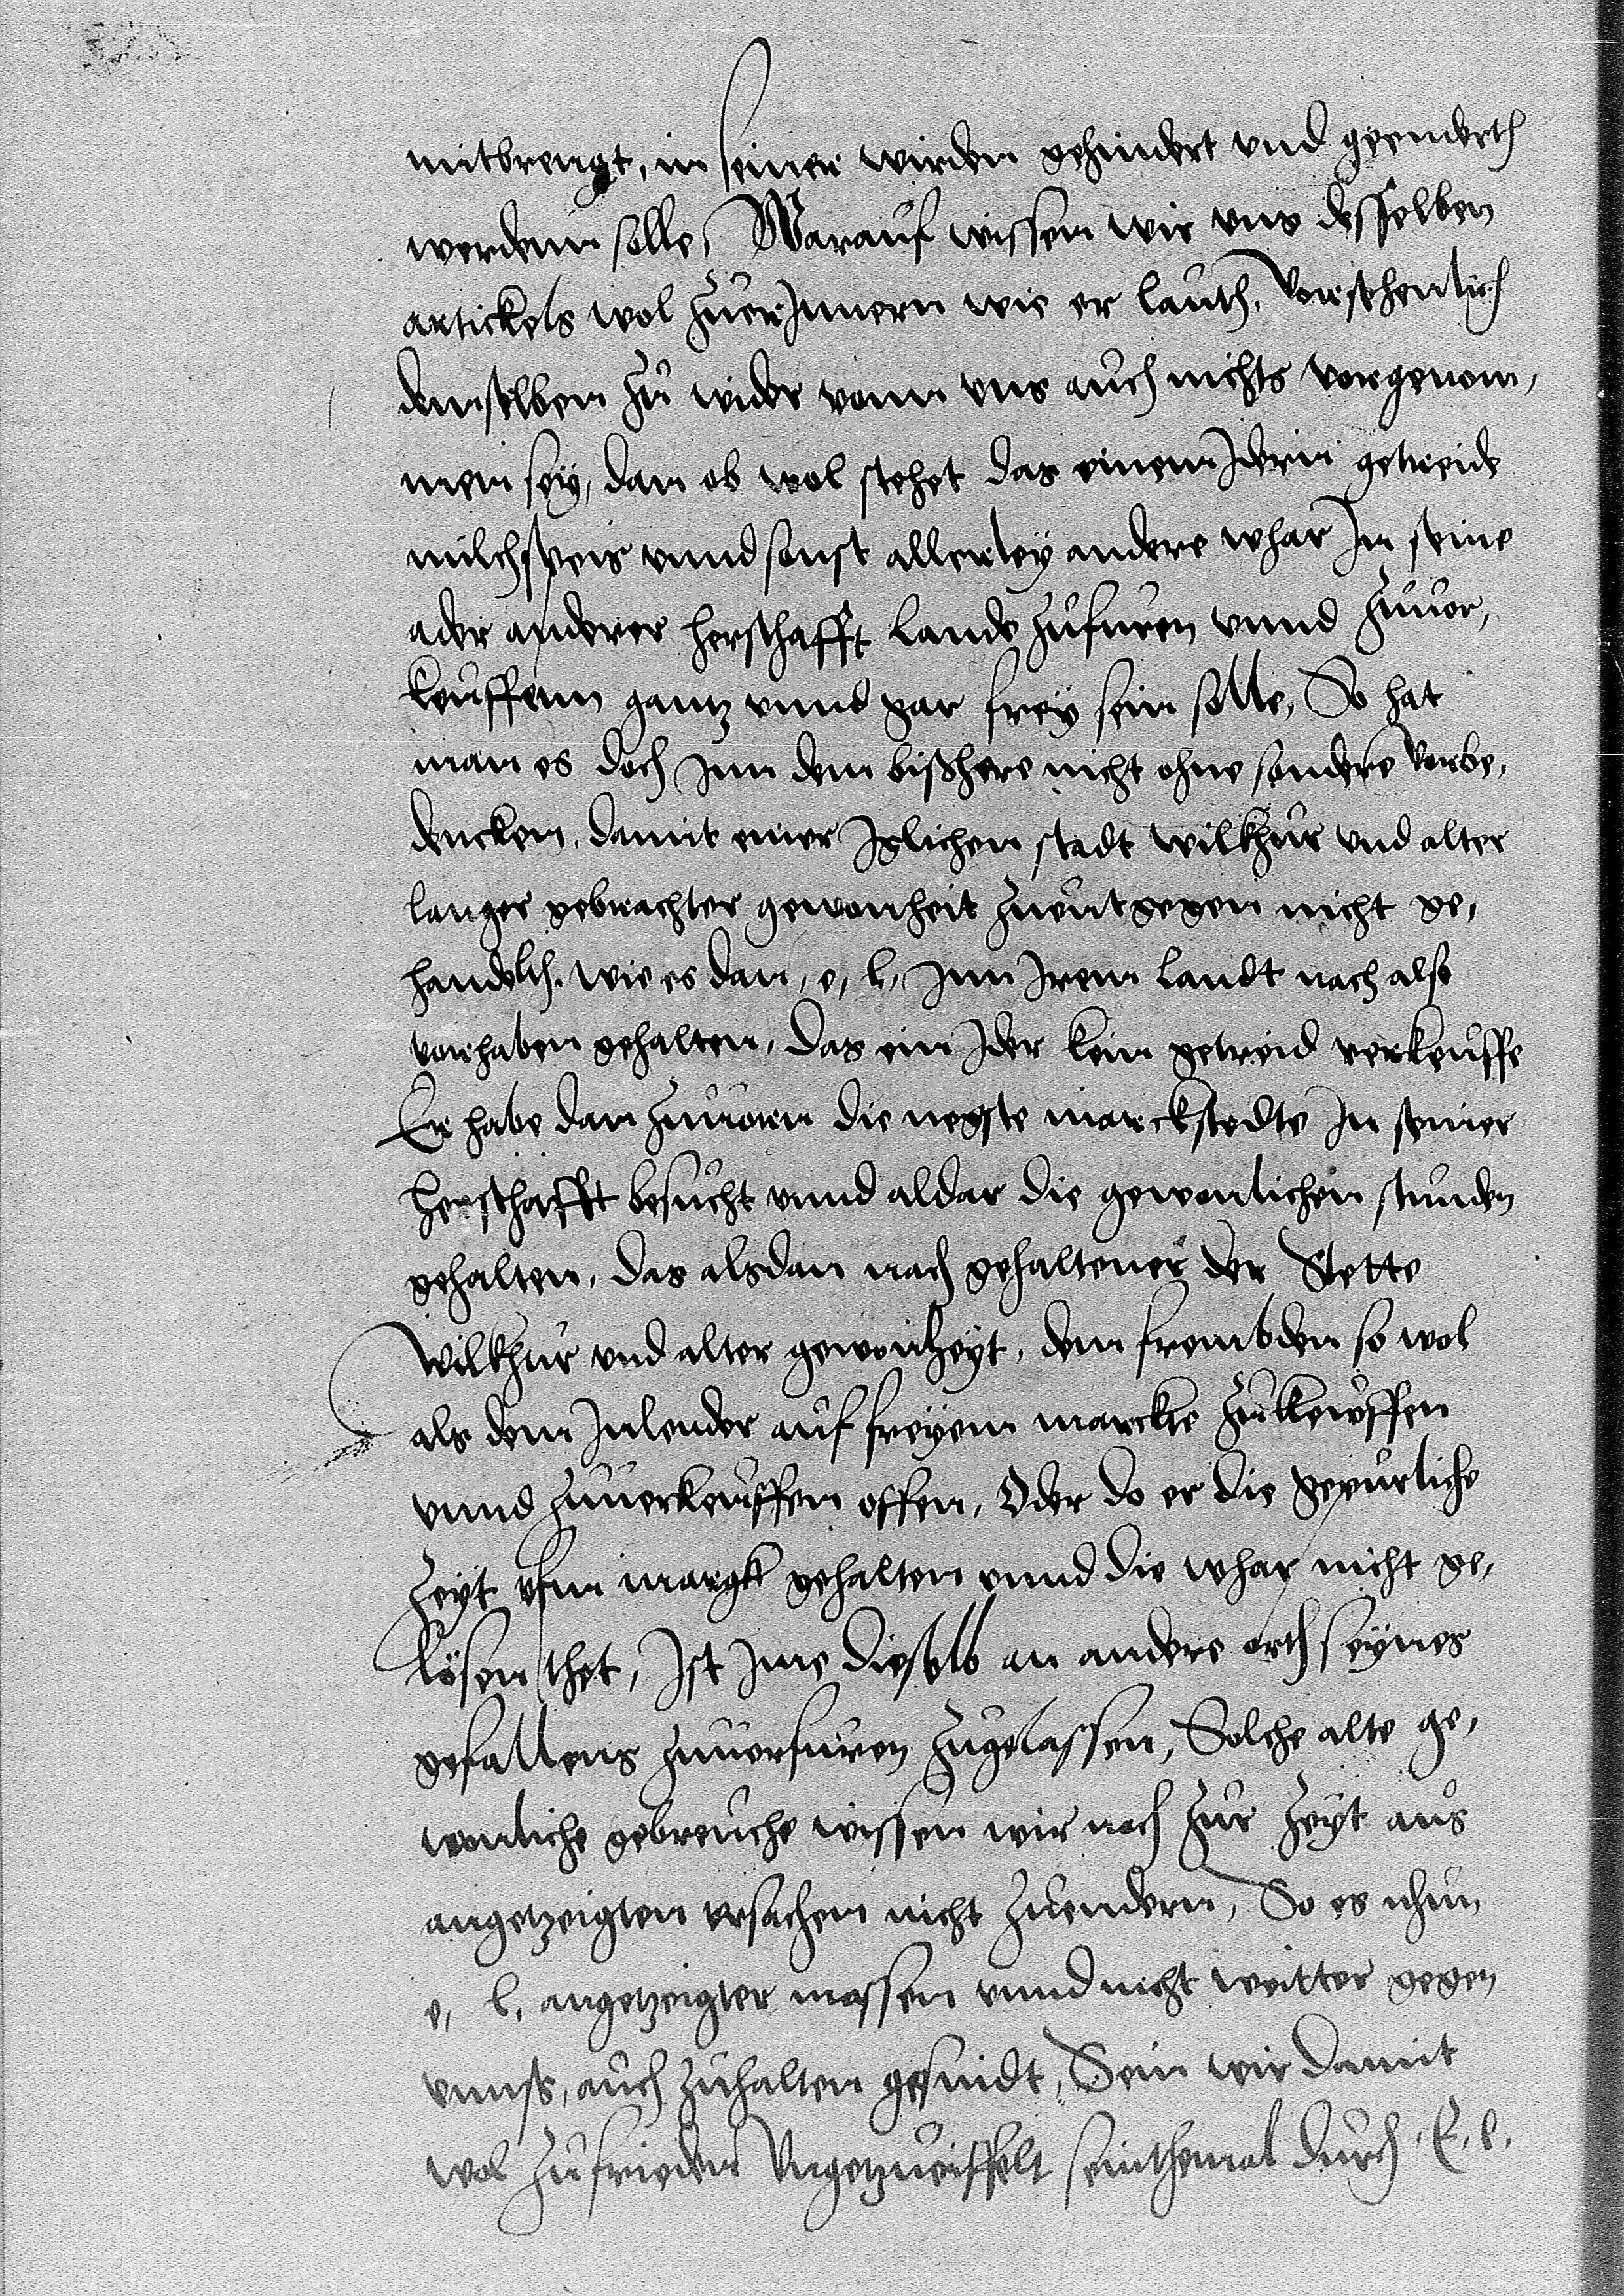 mitbrengt, in seinen wirden gehindert vnd geenderth
werdenn solle, Warauf wissen wir vns desselben
artickels wol zuerJnnern wie er lauth, Vorsehenlich
demselben zu wider vonn vns auch nichts vorgenom,
men sey, dan ob wol stehet das einem Jdern getreide
milchspeis vnnd sonst allerley andere whar Jn seine
ader anderer herschafft lande zufuren vnnd zuuor,
keuffenn gantz vnnd gar frey sein solle, So hat
man es doch Jnn dem bißhere nicht ohne sondere Vorbe,
dencken, damit einer Jglichen stadt wilkhur vnd alter
langer gebrachter gewonheit zuentgegen nicht ge,
handelth, wie es dan, e, l, Jnn Jrem landt nach also
vorhaben gehalten, das ein Jder kein getreid verkeuffe
Er habe dan zuuorn die negste marckstedte Jn seiner
herschafft besucht vnnd aldar die gewonlichen stunden
gehalten, das alsdan nach gehaltener der Stette
wilkhur vnd alter gewonheyt, dem frembden so wol
als dem Jnlender auf freyem marckte zukeuffen
vnnd zuuerkeuffen offen, Oder do er die gepurliche
zeyt vfm margk gehalten vnnd die whar nicht ge,
lösen thet, Jst Jme dieselb an andere orth seynes
gefallens zuuerfuren zugelassen, Solche alte ge,
wonliche gebreuche wissen wir nach zur zeyt aus
angetzeigten vrsachen nicht zuendern, So es nhun
e, l, angetzeigter massen vnnd nicht weitter gegen
vnnß, auch zuhalten gesindt, Sein wir damit
wol zufrieden Vngetzweiffelt seinthemal durch, E, l,